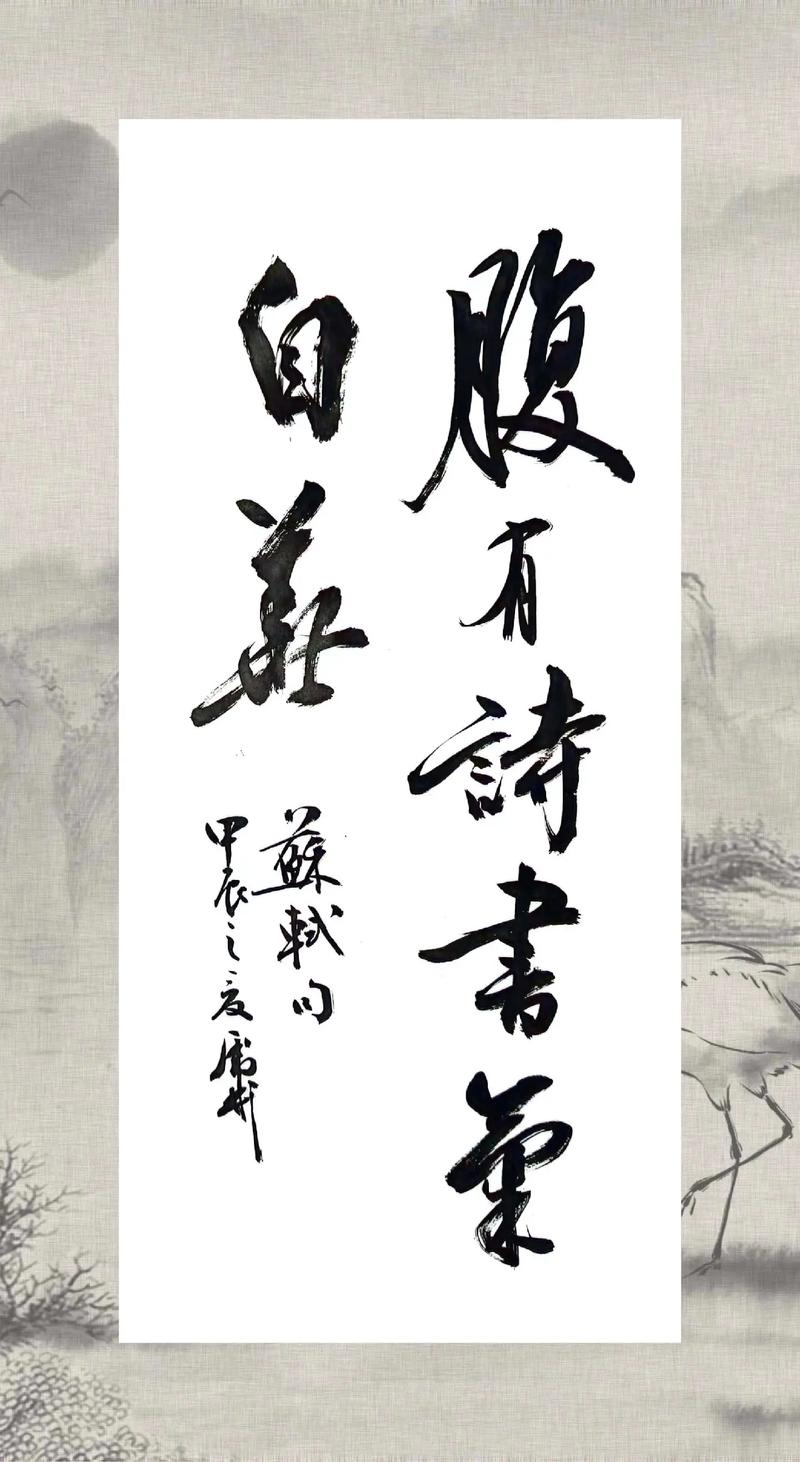 腹有詩書氣
自華
蘇軾句
甲辰之夏